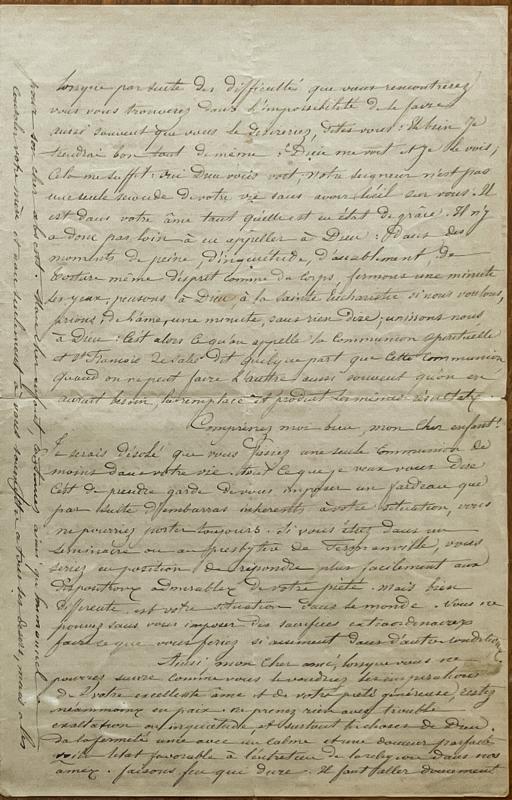 lorsque par suite des difficultés que vous rencontrerez
vous vous trouverez dans l'impossibilité de le faire
aussi souvent que vous le desirerez, dites vous : Eh bien Je
tiendrai bon tout de même : Dieu me voit et Je le vois,
Cela me suffit. oui Dieu vous voit, Notre Seigneur n'est pas
une seule seconde de votre vie sans avoir l'œil sur vous. Il
est dans votre âme tant qu'elle est en état de grâce. Il n'y
a donc pas loin à en appeller à Dieu : Dans des
moments de peine d'inquiétude, d'accablement, de
torture même d'esprit comme de corps, fermons une minute
les yeux, pensons à Dieu à la Sainte Eucharistie si nous voulons,
prions, de l'ame, une minute, sans rien dire ; unissons nous
à Dieu : C'est alors ce qu'on appelle la Communion spirituelle
et St François de Sales dit quelque part que cette communion
quand on ne peut faire l'autre aussi souvent qu'on en
aurait besoin, la remplace et produit les mêmes résultats.
Comprenez moi bien, mon cher enfant.
Je serais désolé que vous fassiez une seule Communion de
moins dans votre vie. tout ce que je veux vous dire
c'est de prendre garde de vous imposer un fardeau que
par suite d'embarras inhérents à votre situation, vous
ne pourriez porter toujours. Si vous étiez dans un
séminaire ou au presbytère de vous
seriez en position de répondre plus facilement aux
dispositions admirables de votre piété. mais bien
différente est votre situation dans le monde. Vous ne
pouvez sans vous imposer des sacrifices extraordinaires
faire ce que vous feriez si aisément dans d'autres conditions
Ainsi mon cher ami, lorsque vous ne
pourrez suivre comme vous le voudriez les inspirations
de votre excellente âme et de votre piété généreuse, restez
néanmoins en paix. ne prenez rien avec trouble
exaltation ou inquiétude, et surtout les choses de Dieu.
La fermeté unie avec un calme et une douceur parfaite
voilà l'état favorable à l'entretien de la religion dans nos
âmes. faisons peu que dure. Il faut aller doucement
pour son cher absent. Mon cher enfant,
votre mère et à tous ses désirs, mais